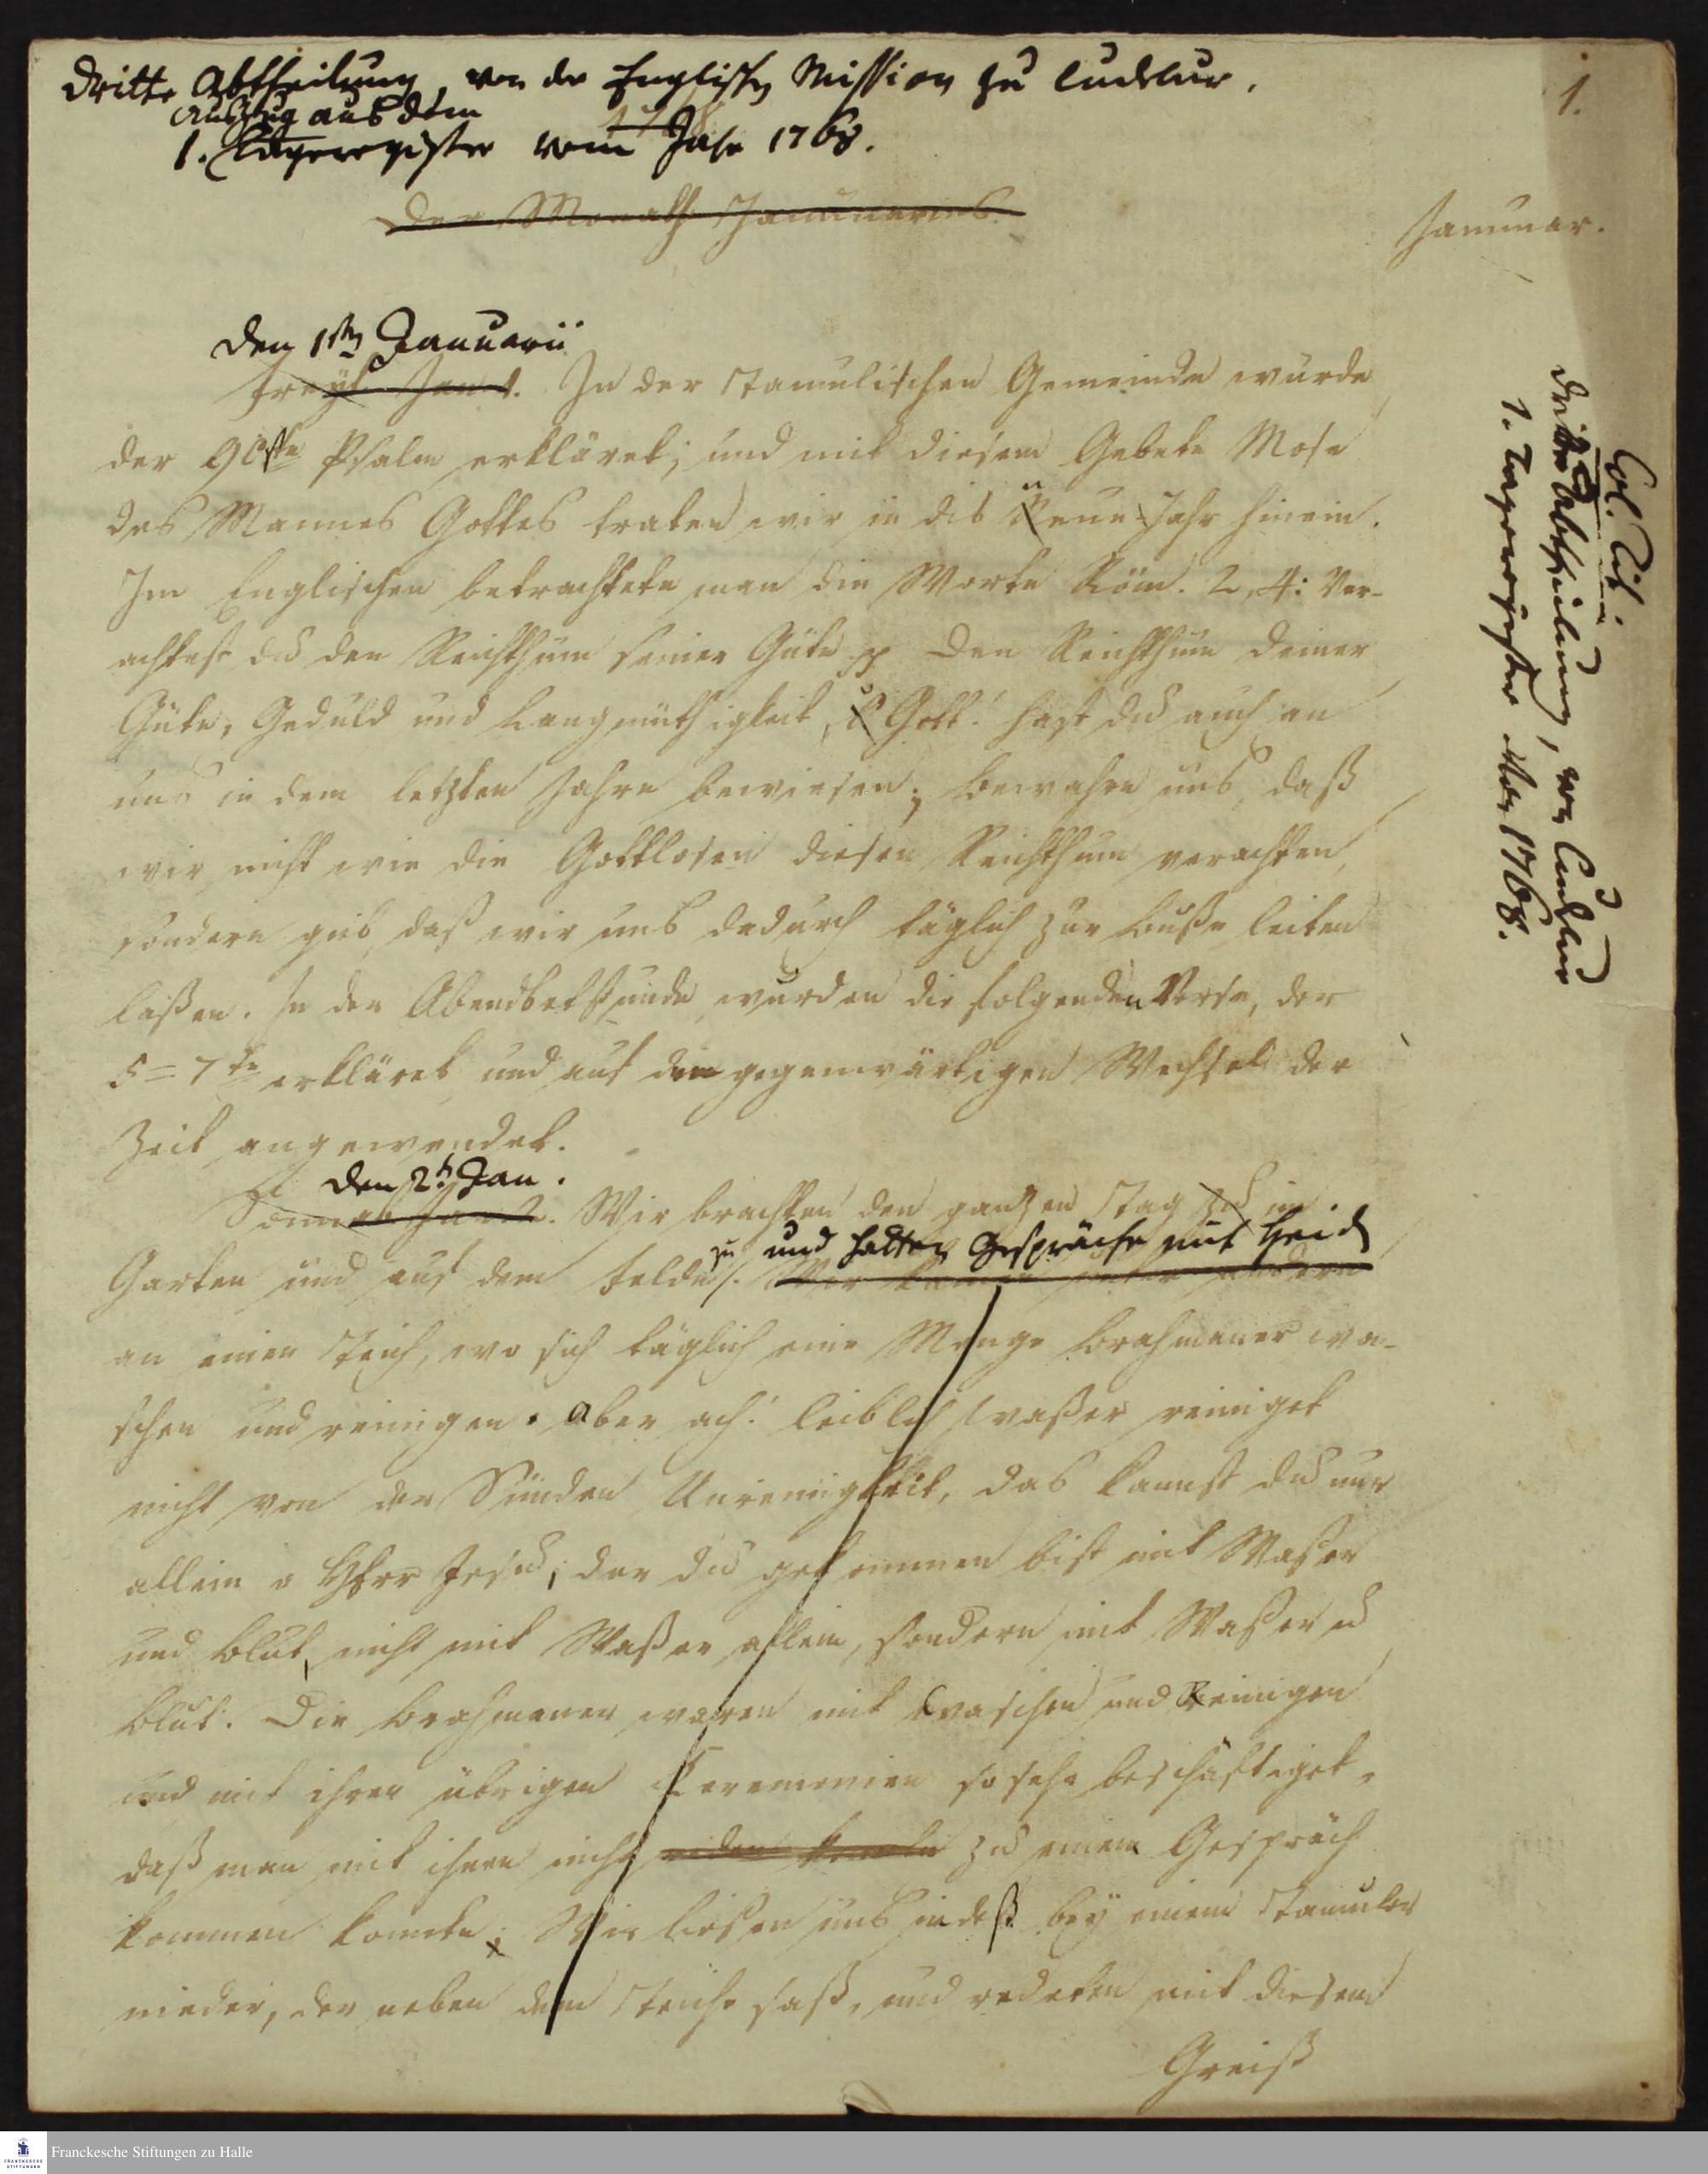 Dritte Abtheilung, von der Englischen Mission zu Cudelur.
1.
Auszug aus dem
1. Tageregister vom Jahr 1768.
Der Monath Januarius.
Januar.
Den 1sten Januarii
Freyt. Jan. 1. In der Tamulischen Gemeinde wurde
der 90ste Psalm erkläret; und mit diesem Gebete Mose
des Mannes Gottes traten wir in dis neue Jahr hinein.
Im Englischen betrachtete man die Worte Röm. 2, 4: Ver-
achtest du den Reichthum seiner Güte p Den Reichthum deiner
Güte, Geduld und Langmüthigkeit, o Gott! hast du auch an
uns in dem letzten Jahre bewiesen; bewahre uns, daß
wir nicht wie die Gottlosen diesen Reichthum verachten,
sondern gib, daß wir uns dadurch täglich zur Buße leiten
laßen. In der Abendbetstunde wurden die folgenden Verse, der
5=7te erkläret und auf den gegenwärtigen Wechsel der
Zeit angewendet.
Den 2t Jan.
Sonnab. Jan. 2. Wir brachten den ganzen Tag zu im
zu und hatten Gespräche mit Heid
Garten und auf dem Felde. Wir kamen unter andern
an einen Teich, wo sich täglich eine Menge Brahmaner wa-
schen und reinigen. Aber ach! leiblich Waßer reiniget
nicht von der Sünden Unreinigkeit, das kannst du nur
allein o HErr Jesu, der du gekommen bist mit Waßer
und Blut, nicht mit Waßer allein, sondern mit Waßer u
Blut. Die Brahmaner waren mit Waschen und Reinigen
und mit ihren übrigen Ceremonien so sehr beschäftiget,
daß man mit ihnen nicht reden konnte zu einem Gespräch
kommen konnte; Wir ließen uns indeß bey einem Tamuler
nieder, der neben dem Teiche saß, und redeten mit diesem
Greiß
Col. Tit.
Dritte Abtheilung, von Cudelur
1. Tageregister von 1768.
Franckesche Stiftungen zu Halle
FRANCKESCHE
STIFTUNGEN